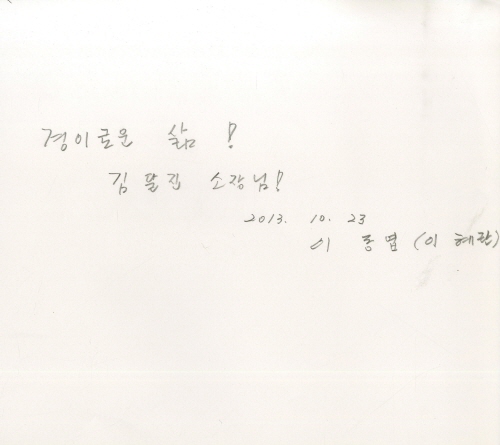 경이로운 삶!
김달진 소장님!
2013. 10. 23
이 종엽 (이 혜란)